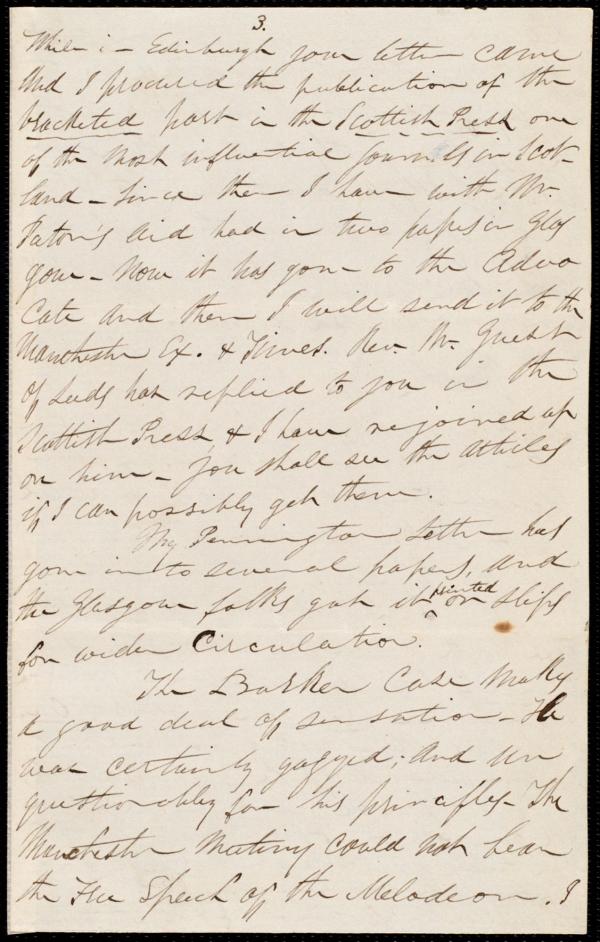 3.
While in Edinburgh your letter came
And I procured the publication of the
bracketed part in the Scottish Press one
of the most influential Journals in Scot-
land - Since then I have with Mr.
Paton's aid had in two papers in Glas
gow - Now it has gone to the Advo
cate and then I will send it to the
Manchester Ex. & Times. Rev. Mr. Guest
of Leeds has replied to you in the
Scottish Press, & I have rejoined up
on him - you shall see the articles
if I can possibly get them.
My Pennington Letter has
gone in to several papers, and
the Glasgow folks got it printed on slips
for wider circulation.
The Barker Case makes
a good deal of sensation - He
was certainly gagged; and un
questionably for his principles - The
Manchester Meeting could not bear
the Free Speech of the Melodeon. I